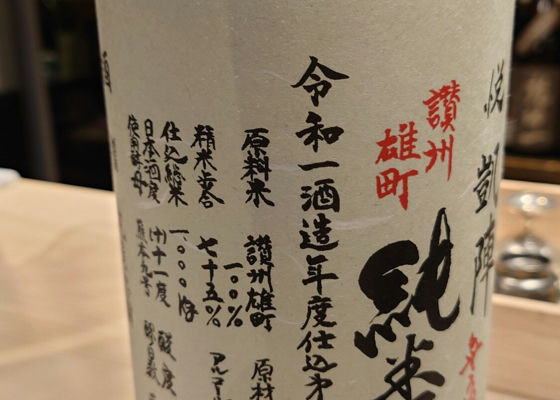 悦凱陣
讃州
雄町
純米
令和一酒造年度仕込第
原料米 讃州雄町
一〇〇%
精米歩合 七十五%
仕込総米 一〇〇〇㎏
日本酒度 (+)十一度 酸度
使用酵母 熊本九号
原材
アルコール
酒